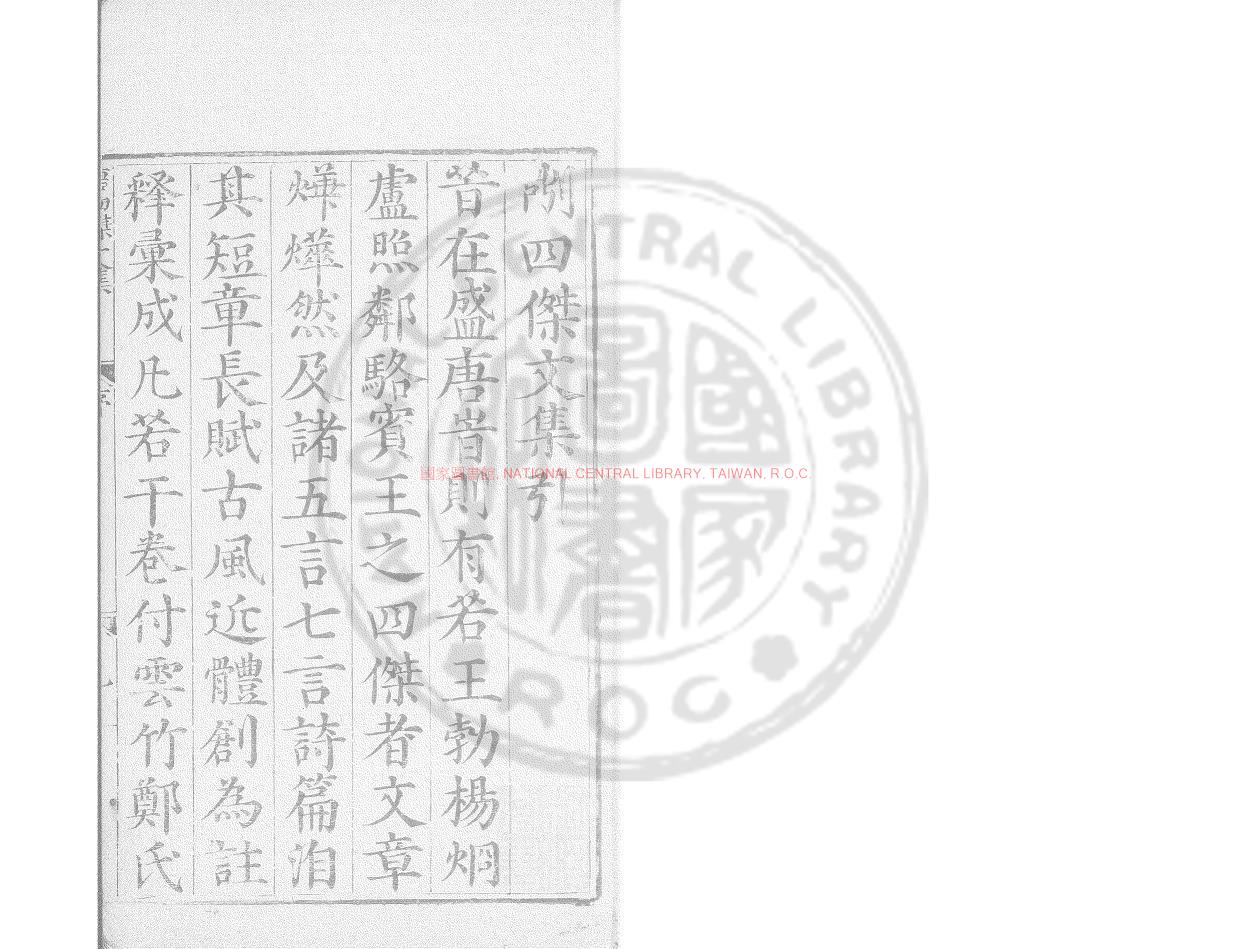 刻四傑文集引
昔在盛唐時則有若王勃楊炯
盧照鄰駱賓王之四傑者文章
燁燁然及諸五言七言詩篇洎
其短章長賦古風近體創為註
釋彙成凡若干卷付雲竹鄭氏
國家圖書館, NATIONAL CENTRAL LIBRARY, TAIWAN, R.O.C.
CENTRAL LIBRARY
R O C
國家
圖書